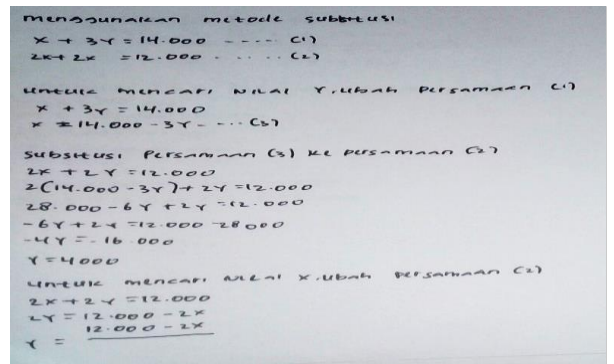 menggunakan metode subtitusi
x + 3y = 14.000 ----- (1)
2x + 2x = 12.000 ..... (2)
untuk mencari nilai Y. ubah persamaan (1)
x + 3y = 14.000
x = 14.000 - 3Y - ... (3)
Subsitusi persamaan (3) ke persamaan (2)
2x + 2Y = 12.000
2(14.000 - 3Y) + 2Y = 12.000
28.000 - 6Y + 2Y = 12.000
-6Y + 2Y = 12.000 - 28000
-4Y = -16.000
Y = 4000
untuk mencari nilai x. ubah persamaan (2)
2x + 2Y = 12.000
2Y = 12.000 - 2x
12.000 - 2x
Y =